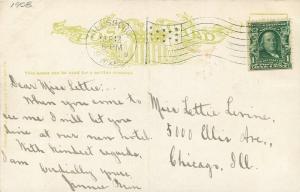 1908
POST CARD
THIS SPACE CAN BE USED FOR A WRITTEN MESSAGE
Dear Miss Lettie:
When you come to
see me I will let you
dine at our new hotel.
With kindest regards,
I am cordially yours,
Jennie
Miss Lettie Levine,
5100 Ellis Ave.,
Chicago, Ill.